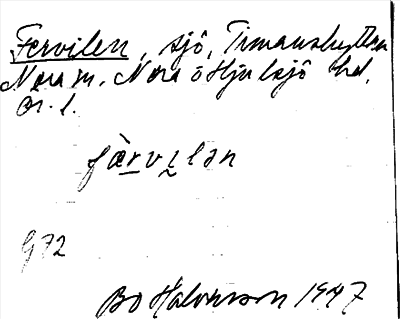 Fervilen, sjö, Timanshyttan
Nora m. Nora o Hjulsjö hd,
Ör. l.
færvilən
972
Bo Halvarsson 1947